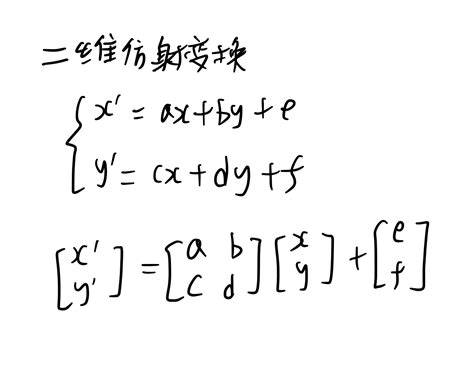 二维仿射变换
{ x' = ax+by+e
y' = cx+dy+f
[x' y'] = [a b c d] [x y] + [e f]